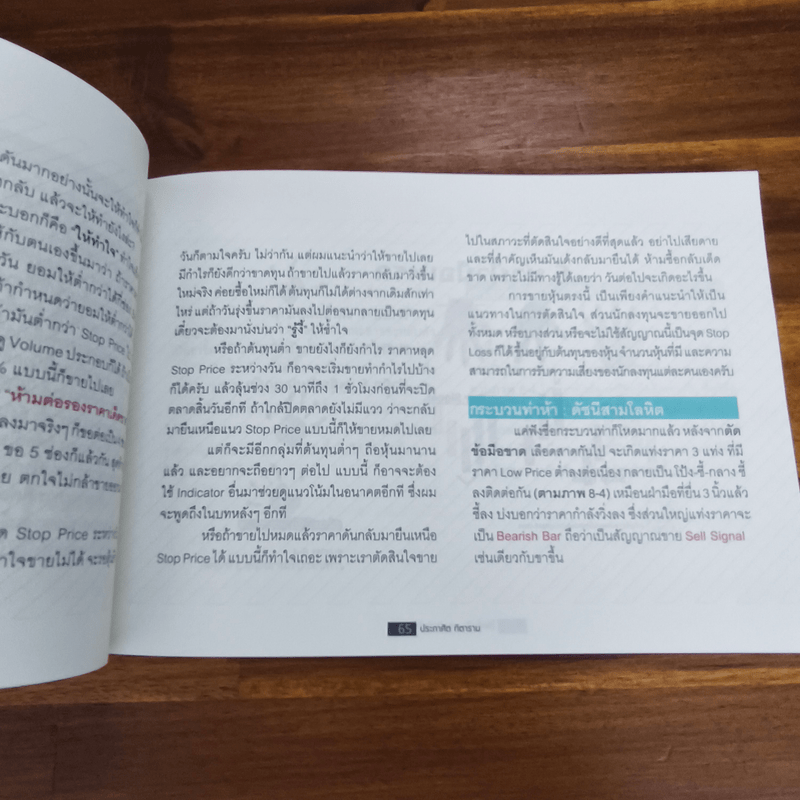 ดันมากอย่างนั้นจะให้ทำใจ
กลับ แล้วจะให้ทำยังไง
จะบอกก็คือ "ให้ทำใจ"
กับตนเองขึ้นมาว่า ถ้า
วัน ยอมให้ต่ำกว่าได้
กำหนดว่ายอมให้ต่ำกว่า
มันต่ำกว่า Stop Price
Volume ประกอบก็ได้
% แบบนี้ก็ขายไปเลย
"ห้ามต่อรองราคาเด็ดขาด
ลงมาจริงๆ ก็ขอต่อเป็น
ขอ 5 ช่องก็แล้วกัน
ตกใจไม่กล้าขายออก
Stop Price ระหว่าง
ทำใจขายไม่ได้ จะรอ
วันก็ตามใจครับ ไม่ว่ากัน แต่ผมแนะนำว่าให้ขายไปเลย
มีกำไรก็ยังดีกว่าขาดทุน ถ้าขายไปแล้วราคากลับมาวิ่งขึ้น
ใหม่จริง ค่อยซื้อใหม่ก็ได้ ต้นทุนก็ไม่ได้ต่างจากเดิมสักเท่า
ไหร่ แต่ถ้าวันรุ่งขึ้นราคามันลงไปต่อจนกลายเป็นขาดทุน
เดี๋ยวจะต้องมานั่งบ่นว่า "รู้งี้" ให้ช้ำใจ
หรือถ้าต้นทุนต่ำ ขายยังไงก็ยังกำไร ราคาหลุด
Stop Price ระหว่างวัน ก็อาจจะเริ่มขายทำกำไรไปบ้าง
ก็ได้ครับ แล้วลุ้นช่วง 30 นาทีถึง 1 ชั่วโมงก่อนที่จะปิด
ตลาดสิ้นวันอีกที ถ้าใกล้ปิดตลาดยังไม่มีแวว ว่าจะกลับ
มายืนเหนือแนว Stop Price แบบนี้ก็ให้ขายหมดไปเลย
แต่ก็จะมีอีกกลุ่มที่ต้นทุนต่ำๆ ถือหุ้นมานาน
แล้ว และอยากจะถือยาวๆ ต่อไป แบบนี้ ก็อาจจะต้อง
ใช้ Indicator อื่นมาช่วยดูแนวโน้มในอนาคตอีกที ซึ่งผม
จะพูดถึงในบทหลังๆ อีกที
หรือถ้าขายไปหมดแล้วราคาดันกลับมายืนเหนือ
Stop Price ได้ แบบนี้ก็ทำใจเถอะ เพราะเราตัดสินใจขาย
ไปในสภาวะที่ตัดสินใจอย่างดีที่สุดแล้ว อย่าไปเสียดาย
และที่สำคัญเห็นมันเด้งกลับมายืนได้ ห้ามซื้อกลับเด็ด
ขาด เพราะไม่มีทางรู้ได้เลยว่า วันต่อไปจะเกิดอะไรขึ้น
การขายหุ้นตรงนี้ เป็นเพียงคำแนะนำให้เป็น
แนวทางในการตัดสินใจ ส่วนนักลงทุนจะขายออกไป
ทั้งหมด หรือบางส่วน หรือจะไม่ใช้สัญญาณนี้เป็นจุด Stop
Loss ก็ได้ ขึ้นอยู่กับต้นทุนของหุ้น จำนวนหุ้นที่มี และความ
สามารถในการรับความเสี่ยงของนักลงทุนแต่ละคนเองครับ
กระบวนท่าห้า : ดัชนีสามโลหิต
แค่ฟังชื่อกระบวนท่าก็โหดมากแล้ว หลังจากตัด
ข้อมือขาด เลือดสาดกันไป จะเกิดแท่งราคา 3 แท่ง ที่มี
ราคา Low Price ต่ำลงต่อเนื่อง กลายเป็น โป้ง-ชี้-กลาง ชี้
ลงติดต่อกัน (ตามภาพ 8-4) เหมือนฝ่ามือที่ยื่น 3 นิ้วแล้ว
ชี้ลง บ่งบอกว่าราคากำลังวิ่งลง ซึ่งส่วนใหญ่แท่งราคาจะ
เป็น Bearish Bar ถือว่าเป็นสัญญาณขาย Sell Signal
เช่นเดียวกับขาขึ้น
65 ประกาศิต ทิตาราม